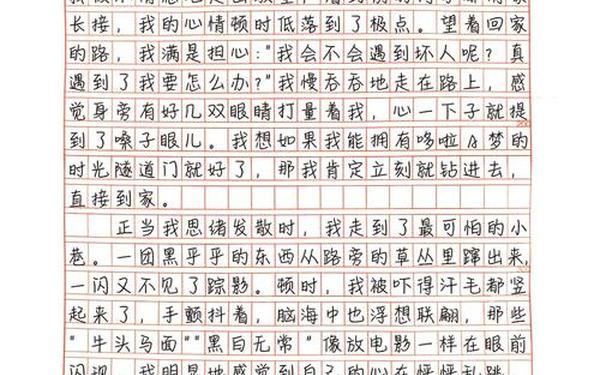 长接，我的心情顿时低落到了极点。望着回家
的路，我满是担心："我会不会遇到坏人呢？真
遇到了我要怎么办？"我慢吞吞地走在路上，感
觉身旁有好几双眼睛打量着我，心一下子就提
到了嗓子眼儿。我想如果我能拥有哆啦A梦的
时光隧道门就好了，那我肯定立刻就钻进去，
直接到家。
正当我思绪发散时，我走到了最可怕的小
巷。一团黑乎乎的东西从路旁的草丛里蹿出来，
一闪又不见了踪影。顿时，我被吓得汗毛都竖
起来了，手颤抖着，脑海中也浮想联翩，那些
"牛头马面""黑白无常"像放电影一样在眼前
闪现，我明显地感觉到自己的心在怦怦乱跳